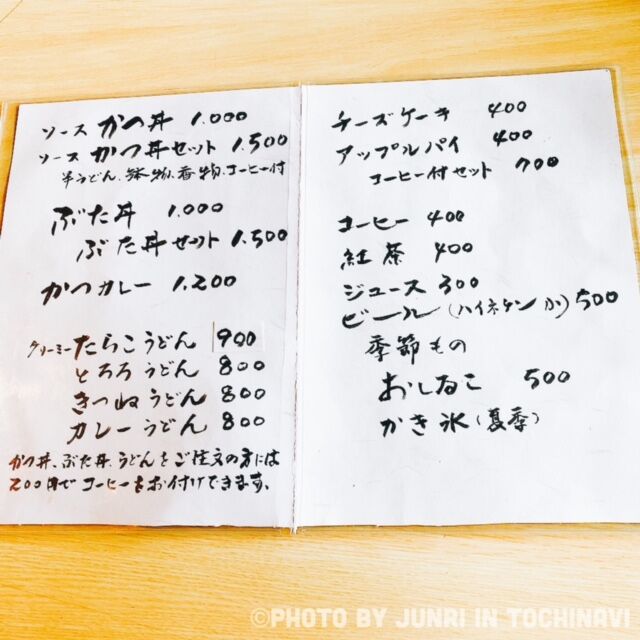 ソースかつ丼 1.000
ソースかつ丼セット 1.500
半うどん、鉢物、香物、コーヒー付
ぶた丼 1.000
ぶた丼セット 1.500
かつカレー 1.200
クリーミーたらこうどん 900
とろろうどん 800
きつねうどん 800
カレーうどん 800
かつ丼、ぶた丼、うどんをご注文の方には
200円でコーヒーをお付けできます、
チーズケーキ 400
アップルパイ 400
コーヒー付セット 700
コーヒー 400
紅茶 400
ジュース 300
ビール(ハイネケン か)500
季節もの
おしるこ 500
かき氷(夏季)
©PHOTO BY JUNRI IN TOCHINAVI